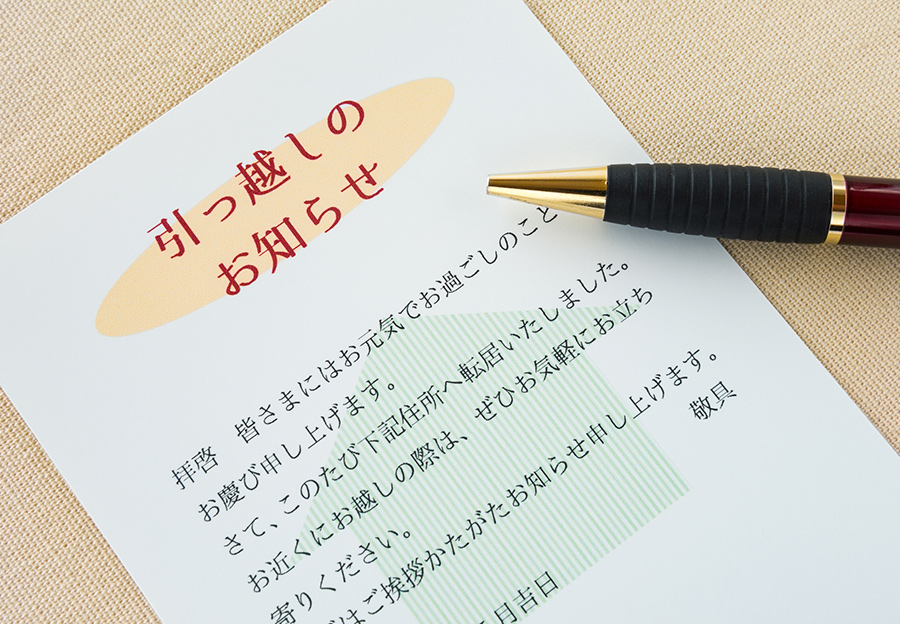 引っ越しの
お知らせ
拝啓　皆さまにはお元気でお過ごしのこと
お慶び申し上げます。
さて、このたび下記住所へ転居いたしました。
お近くにお越しの際は、ぜひお気軽にお立ち
寄りください。
はご挨拶かたがたお知らせ申し上げます。
敬具
月吉日